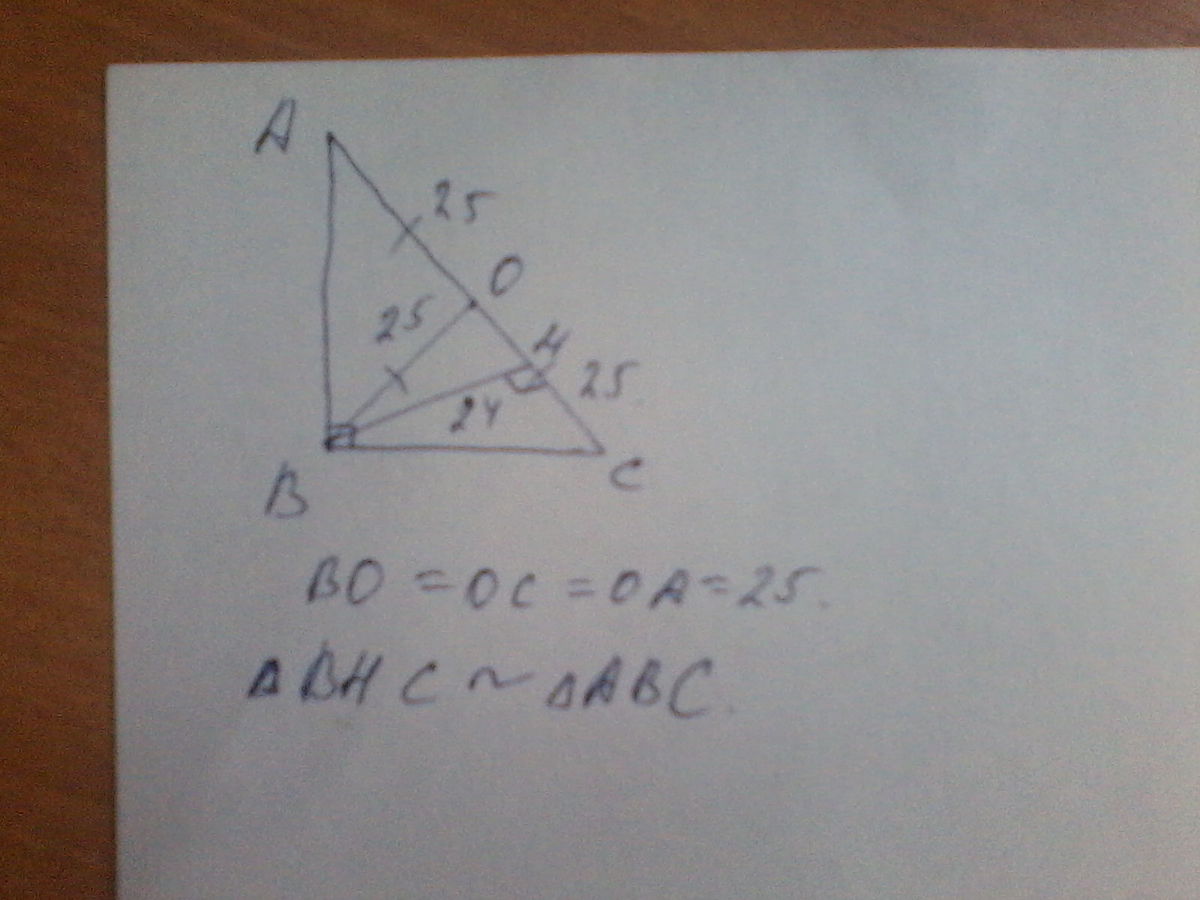 A
25
O
25
H
25.
24
B
C
BO = OC = OA = 25.
Δ BHC ~ ΔABC.